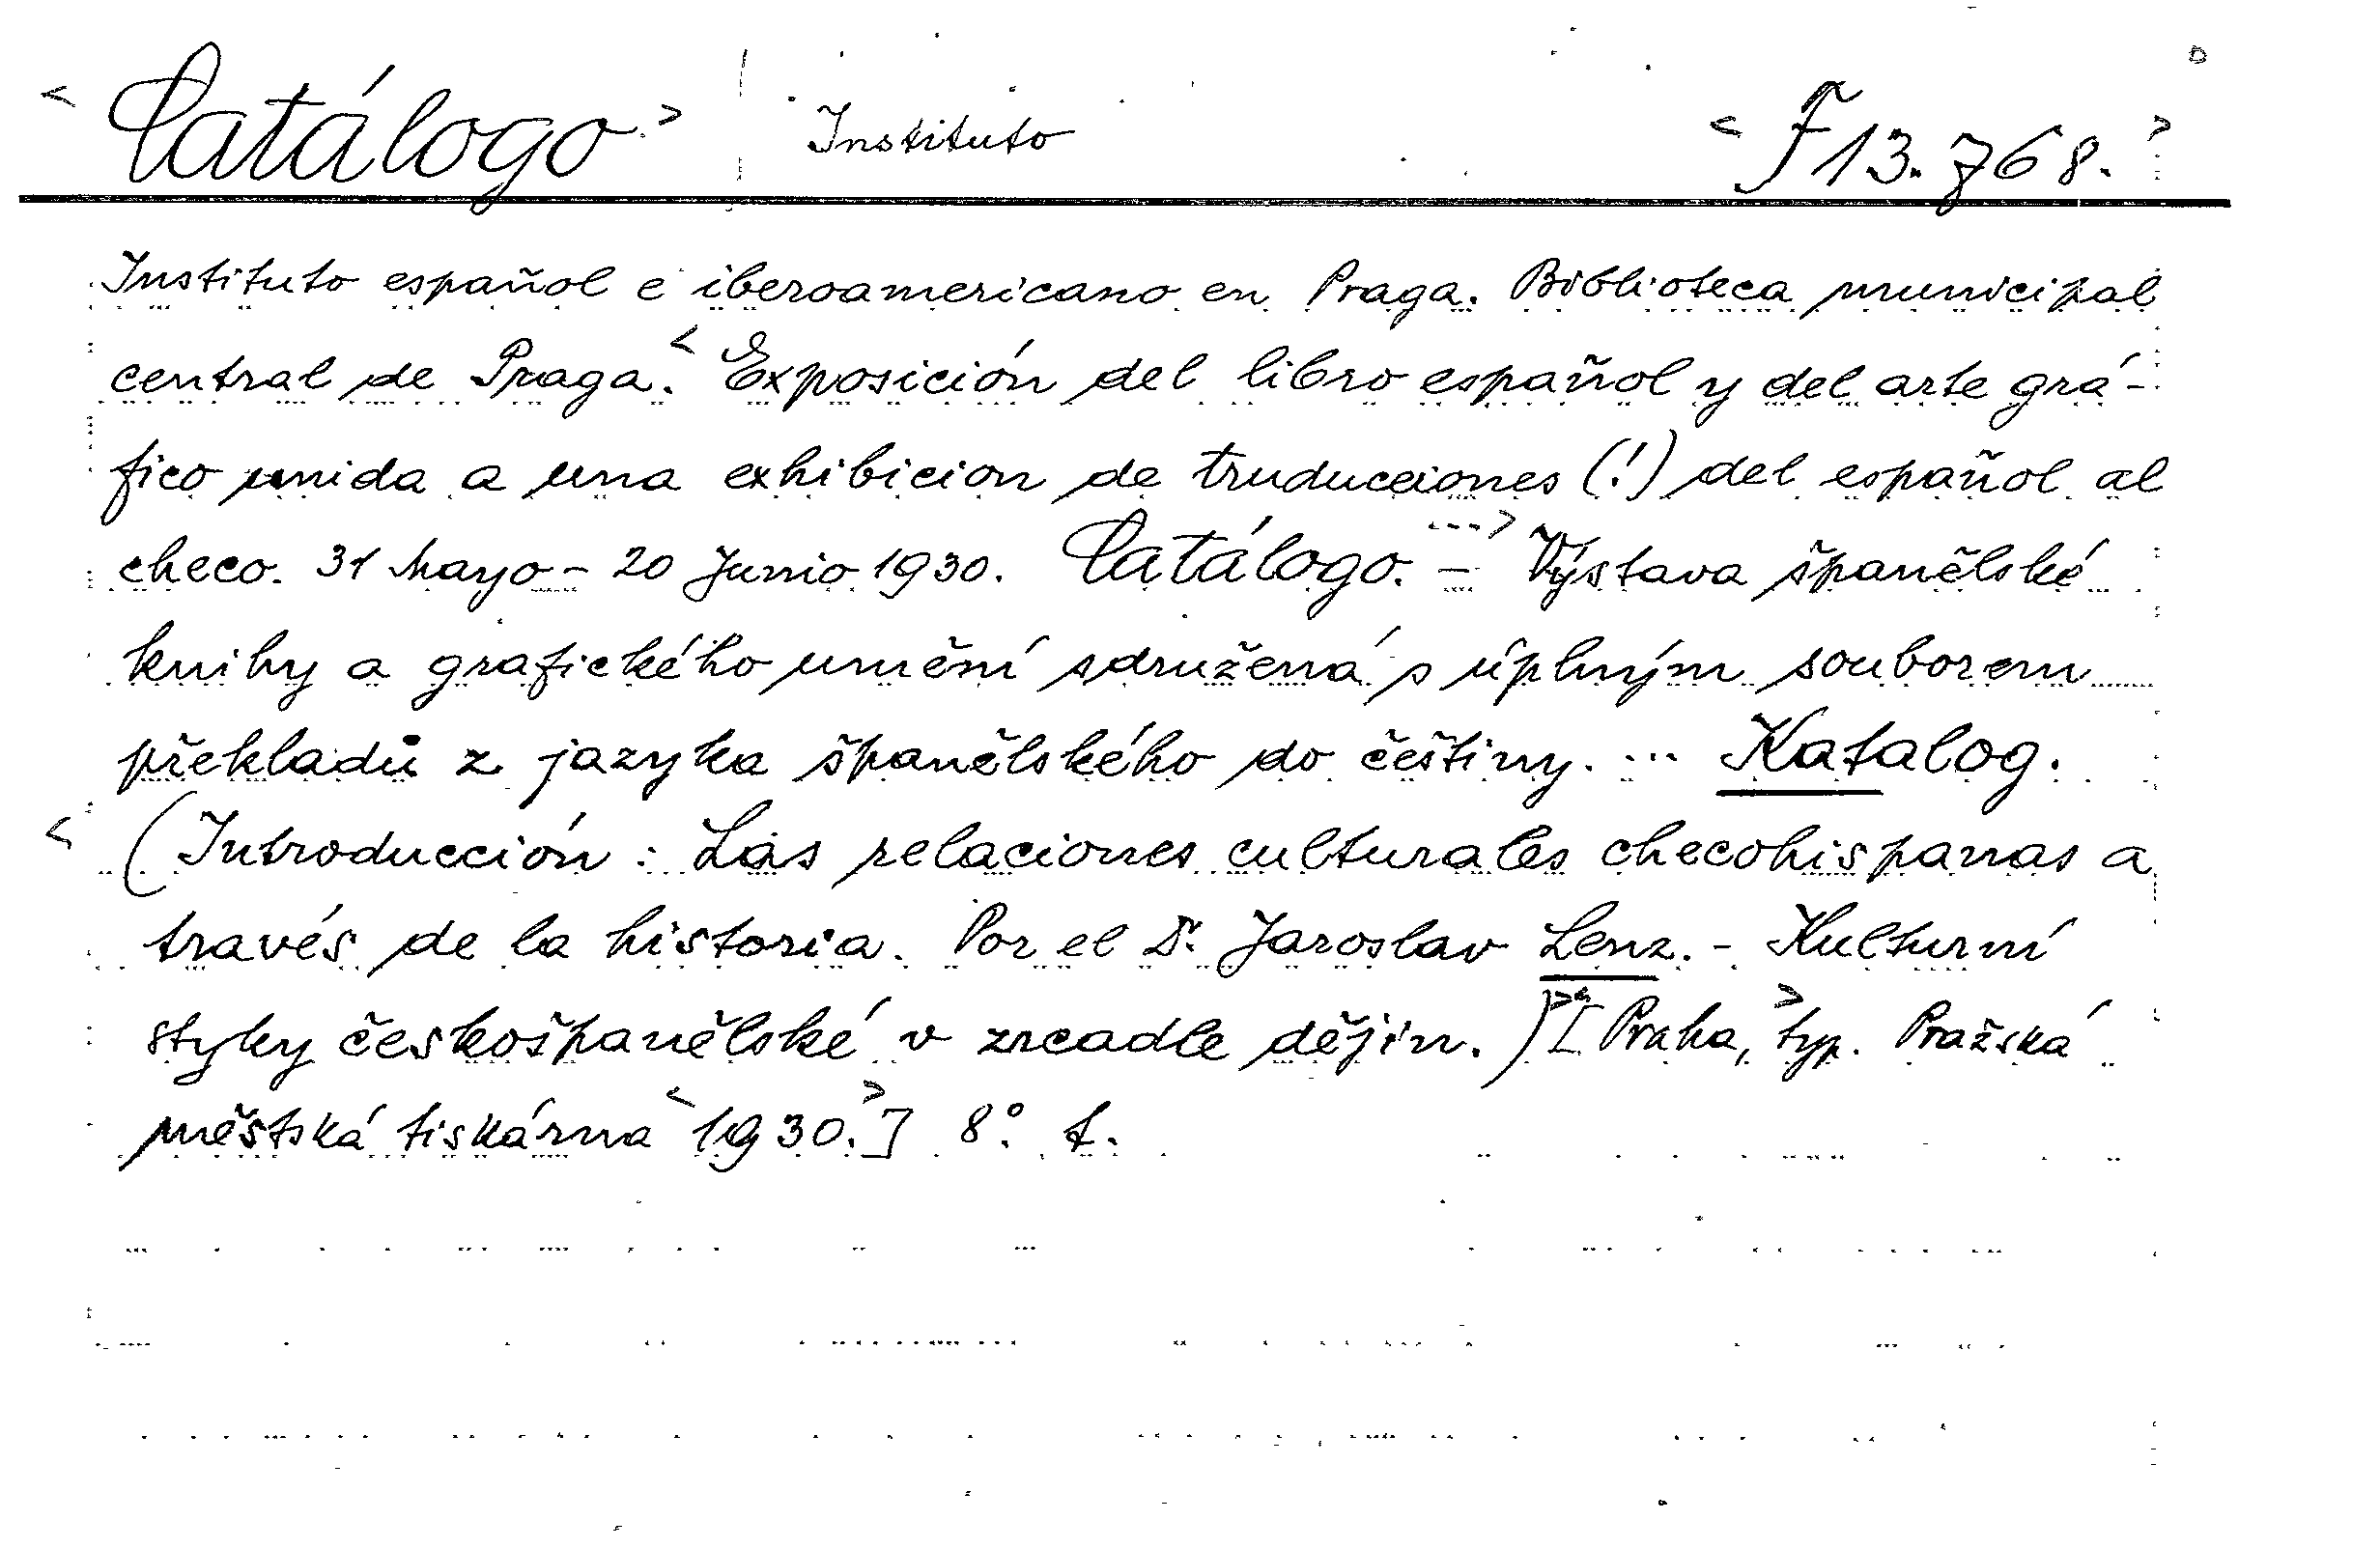 < Catálogo > Instituto < F 13.768. >
Instituto español e iberoamericano en Praga. Biblioteca municipal
central de Praga. < Exposición del libro español y del arte grá-
fico unida a una exhibicion de truducciones (!) del español al
checo. 31 Mayo - 20 Junio 1930. Catálogo. ---> - Výstava španělské
knihy a grafického umění sdružená s úplným souborem
překladů z jazyka španělského do češtiny. ... Katalog.
< (Introducción: Las relaciones culturales checohispanas a
través de la historia. Por el Dr. Jaroslav Lenz. - Kulturní
styky českošpanělské v zrcadle dějin.) >< [Praha, > typ. Pražská
městská tiskárna < 1930. >] 8°. f.